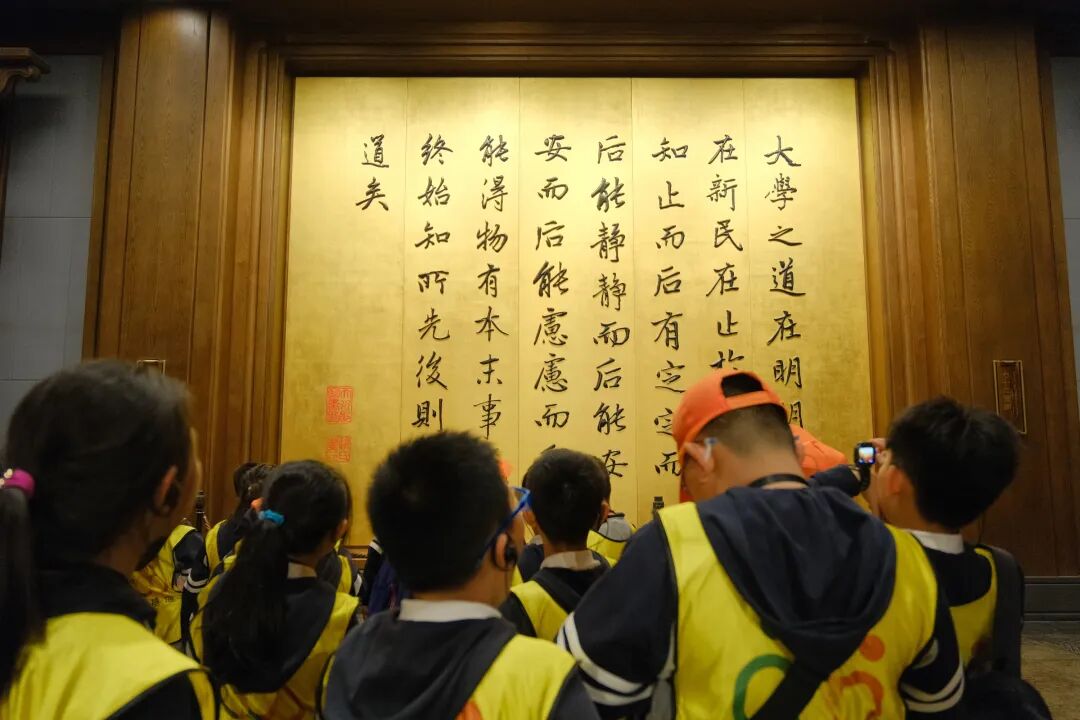 大學之道在明明
在新民在止於
知止而后有定定而
后能静静而后能安
安而后能慮慮而
能得物有本末事
終始知所先後則
道矣